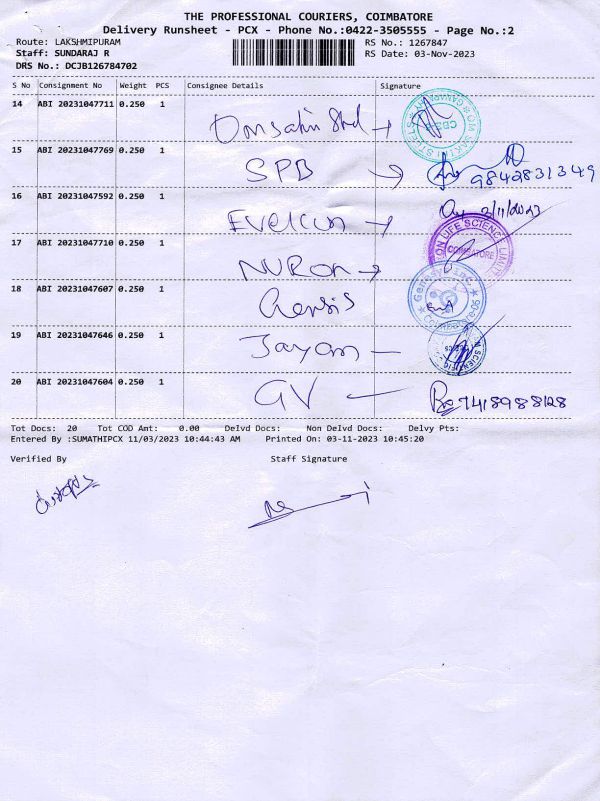 THE PROFESSIONAL COURIERS, COIMBATORE
Delivery Runsheet - PCX - Phone No.:0422-3505555 - Page No.:2
Route: LAKSHMIPURAM RS No.: 1267847
Staff: SUNDARAJ R RS Date: 03-Nov-2023
DRS No.: DCJB126784702
S No Consignment No Weight PCS Consignee Details Signature
14 ABI 20231047711 0.250 1
15 ABI 20231047769 0.250 1 SPB 9842831349
16 ABI 20231047592 0.250 1
17 ABI 20231047710 0.250 1 COIMBATORE
18 ABI 20231047607 0.250 1
19 ABI 20231047646 0.250 1
20 ABI 20231047604 0.250 1 GV 7418988128
Tot Docs: 20 Tot COD Amt: 0.00 Delvd Docs: Non Delvd Docs: Delvy Pts:
Entered By :SUMATHIPCX 11/03/2023 10:44:43 AM Printed On: 03-11-2023 10:45:20
Verified By Staff Signature